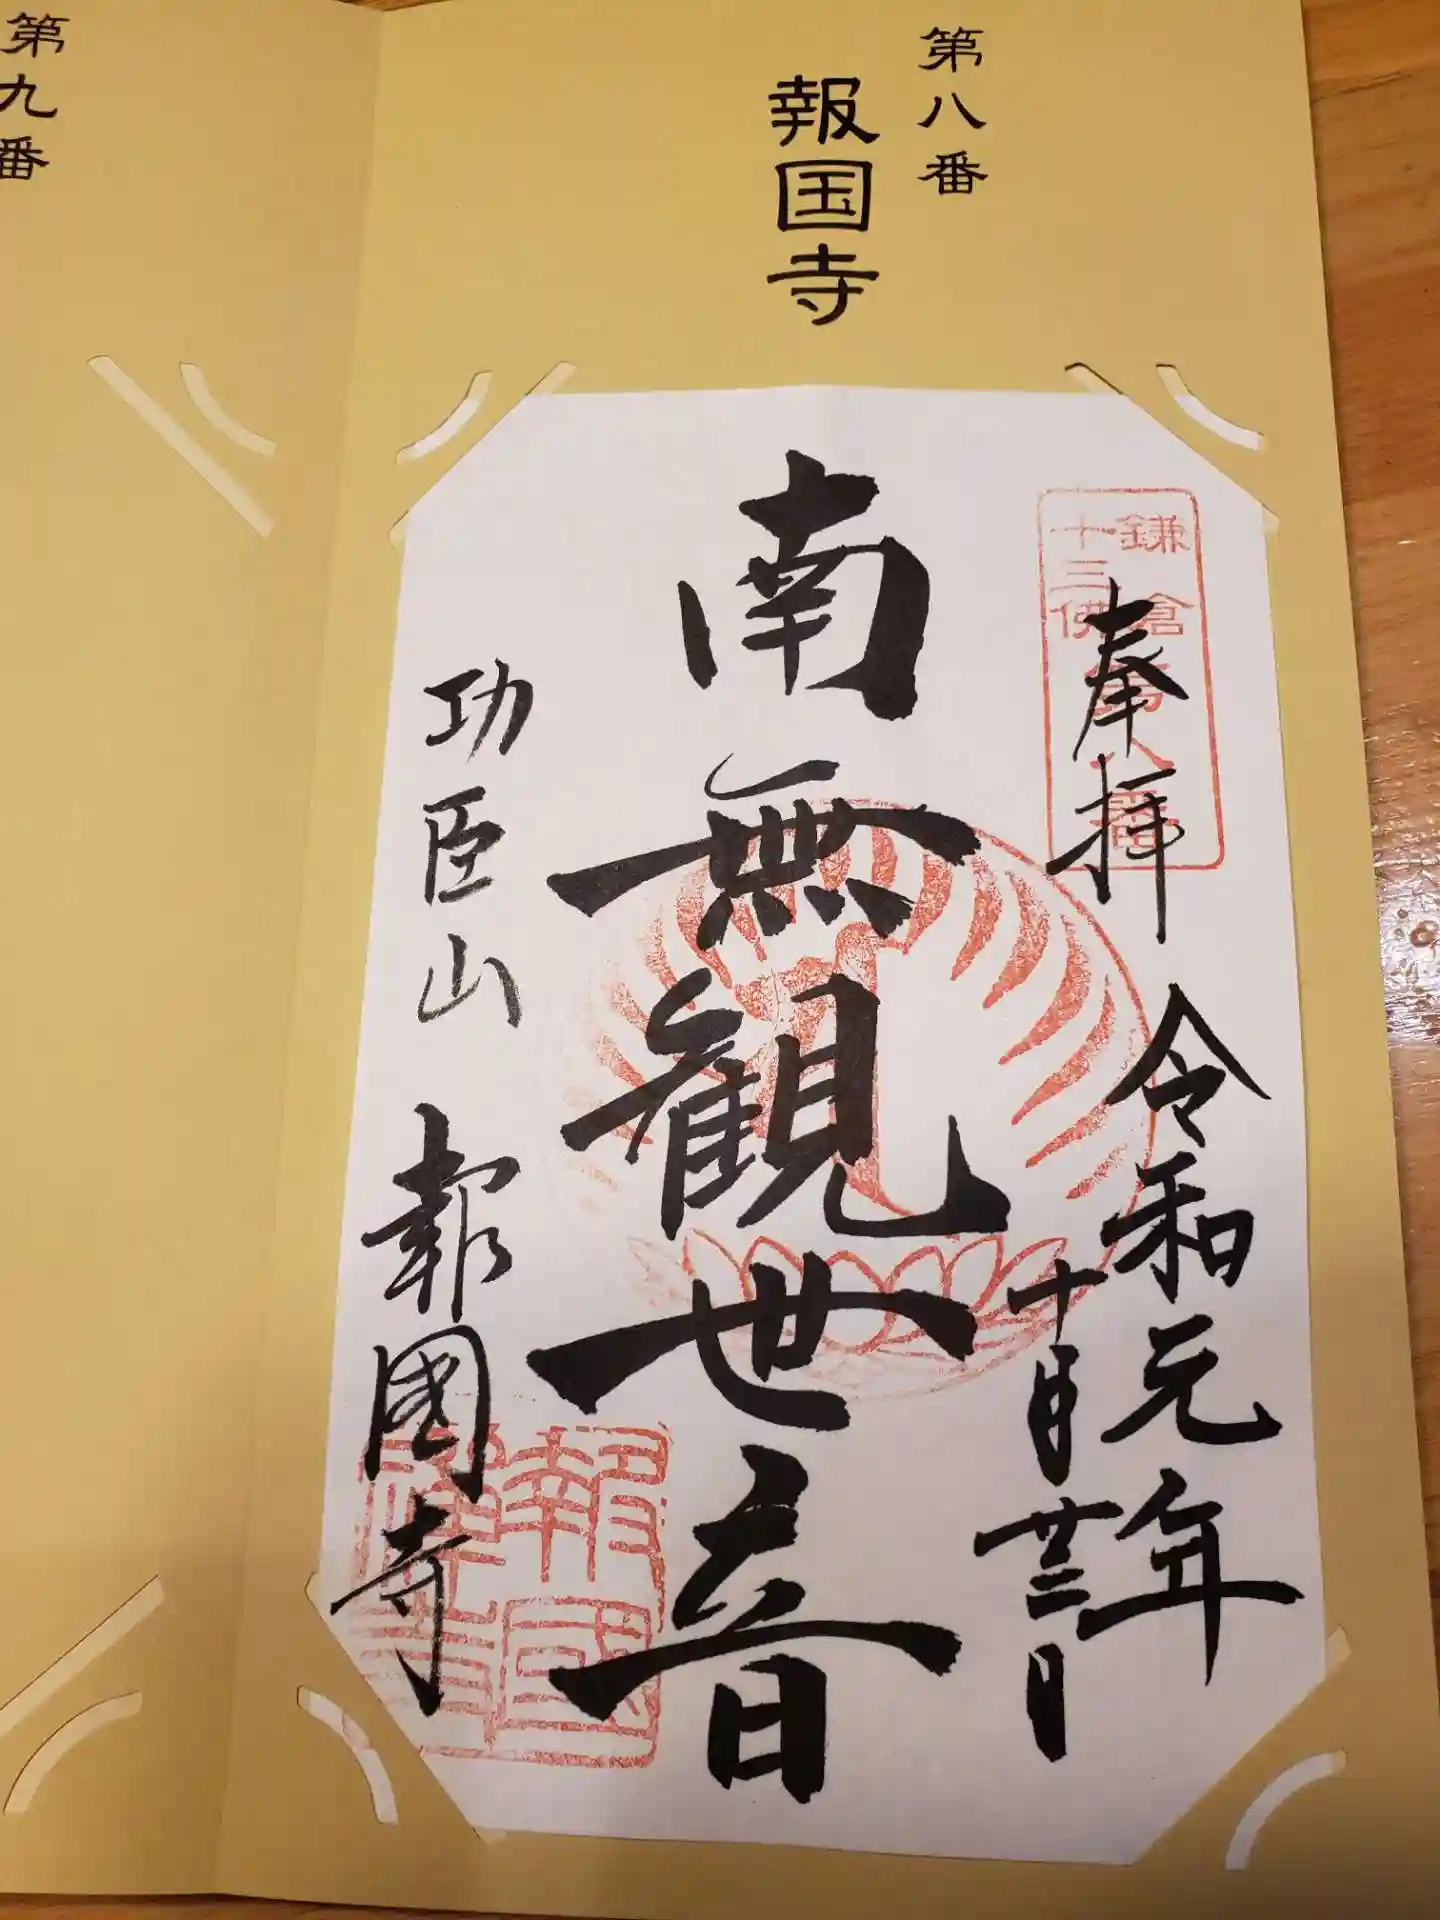 第八番
報国寺
鎌倉
十三佛
第八番
奉拝
令和元年
十月廿二日
南無観世音
功臣山
報國寺
報國
禅寺
第九番